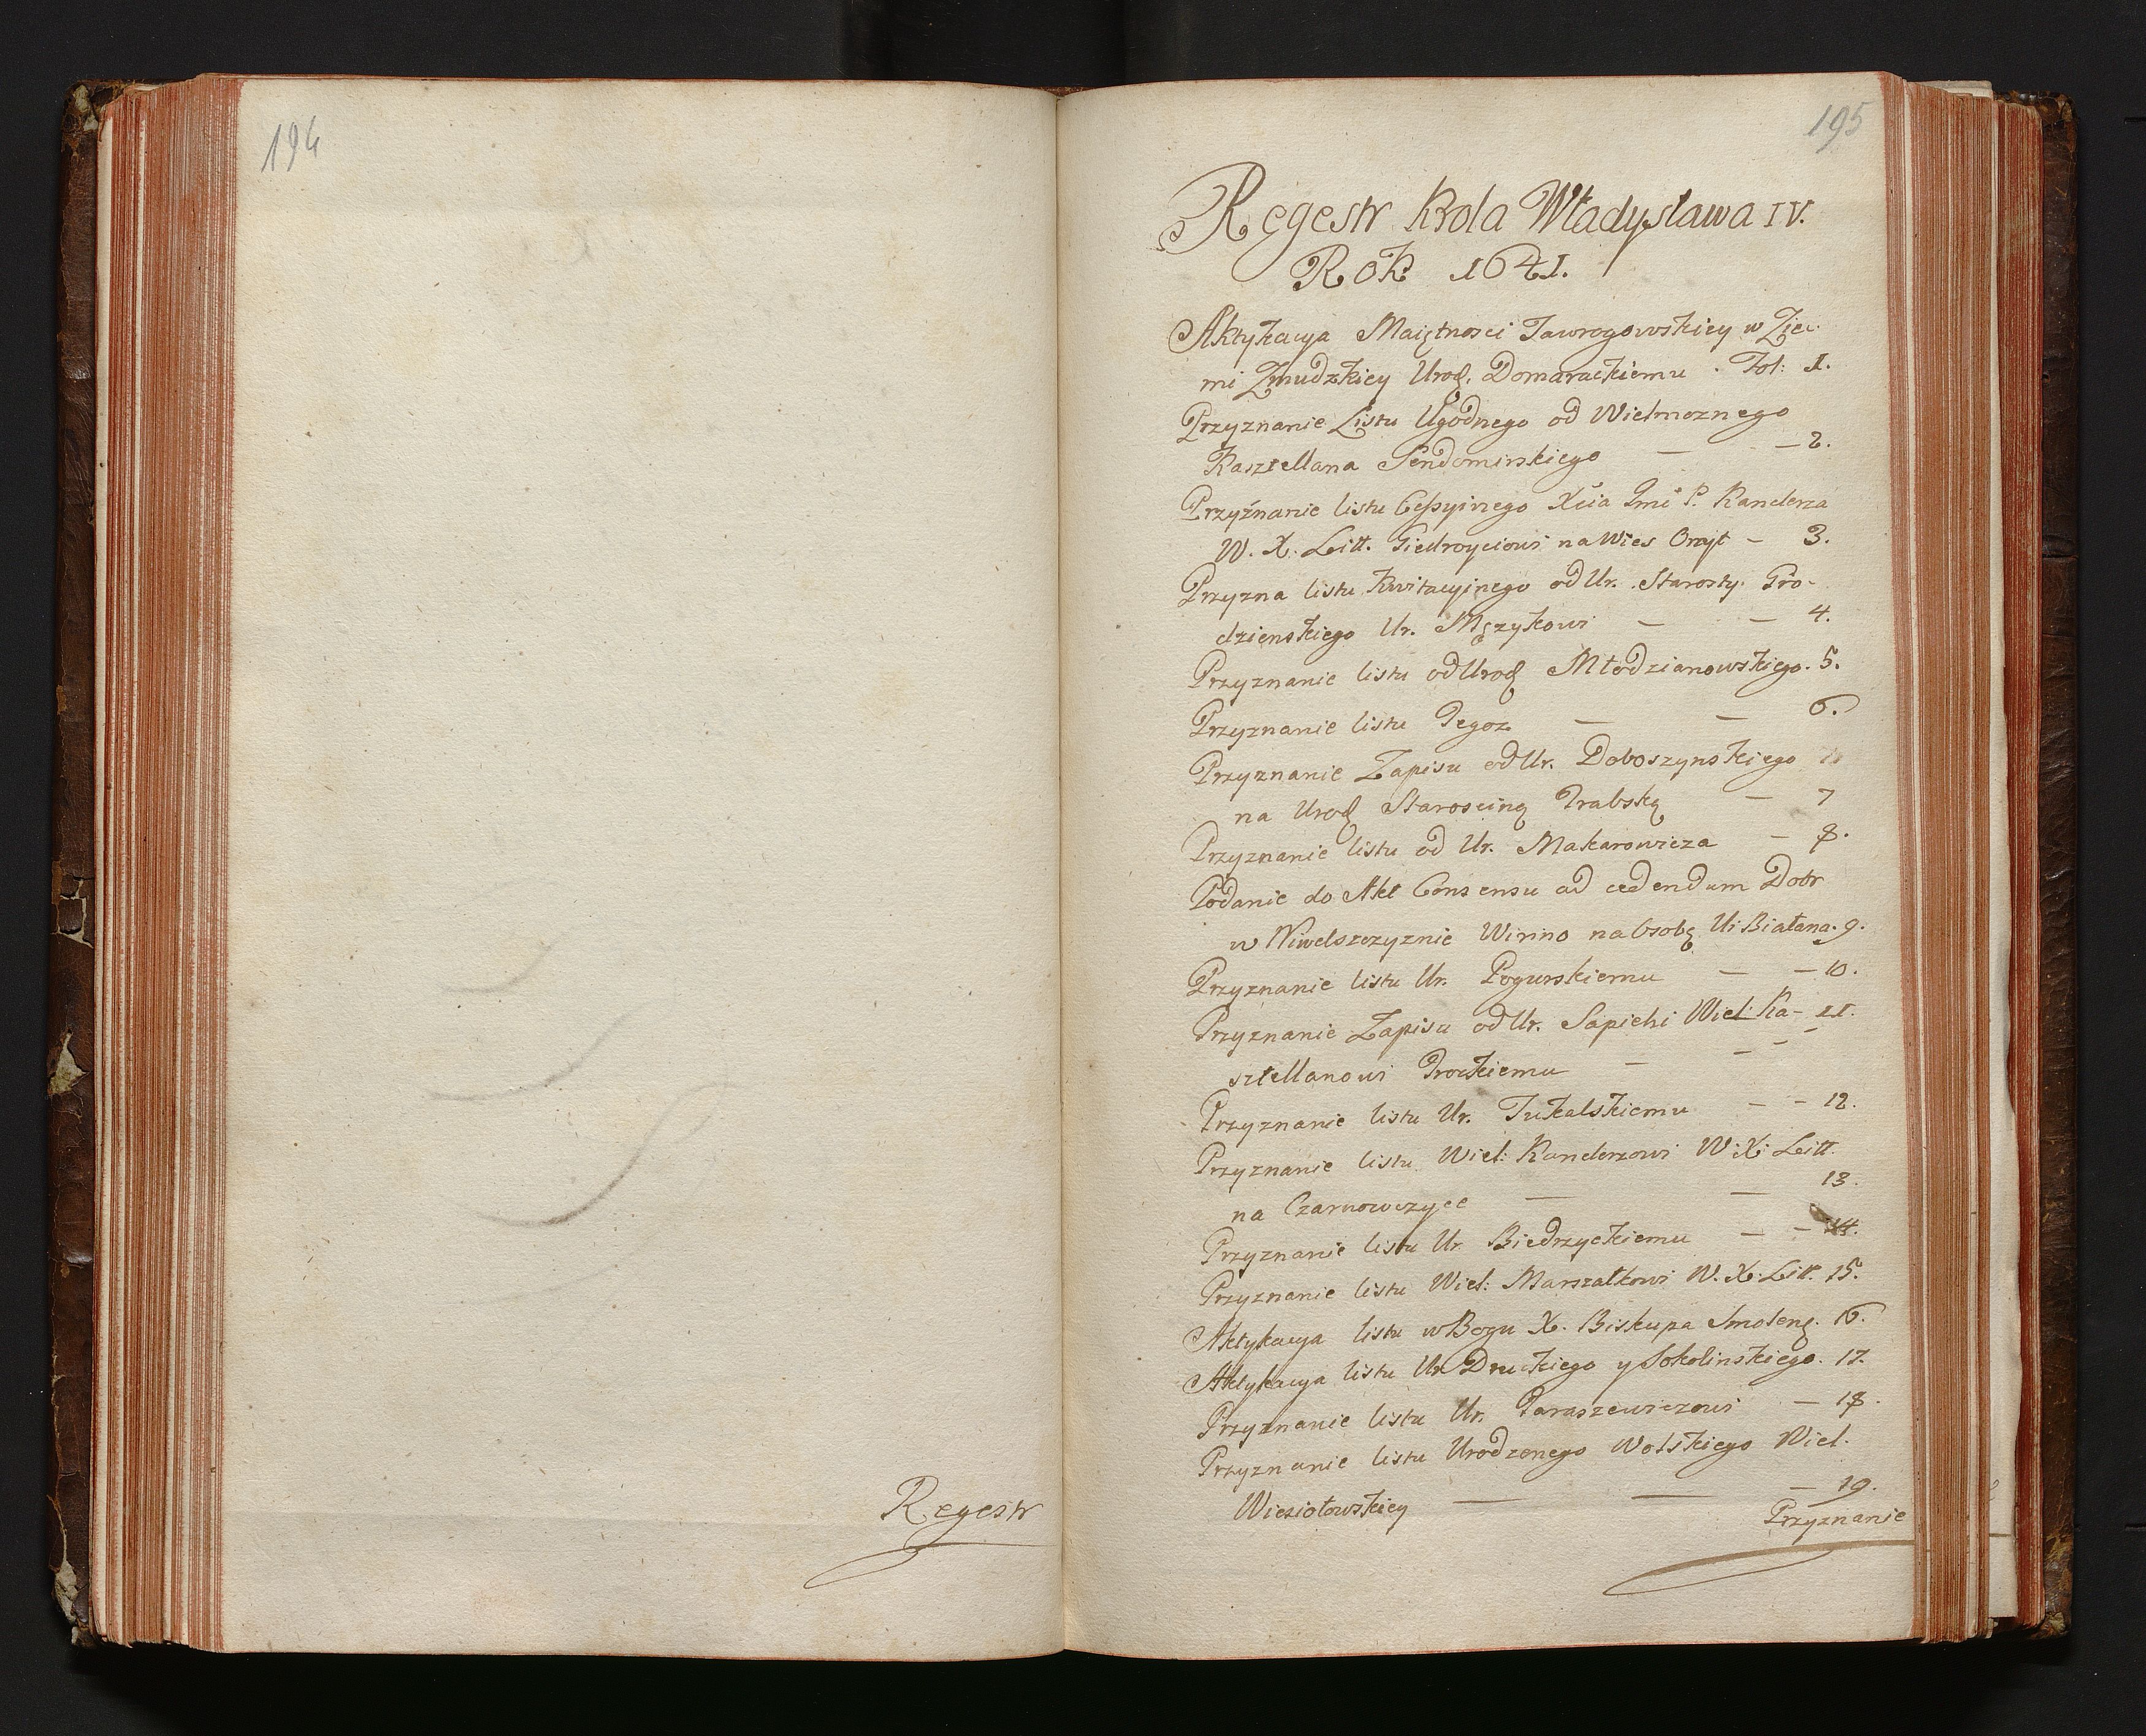 194
Regestr
195
Regestr Krola Władysława IV.
Rok 1641.
Aktykacya Maiętnosci Tawrogowskiey w Zie-
mi Zmudzkiey Urod. Domarackiemu . Fol: 1.
Przyznanie Listu Ugodnego od Wielmoznego
Kasztellana Sendomirskiego — — 2.
Przyznanie listu Cessyinego Xcia Jmci P. Kanclerza
W. X. Litt. Giedroyciowi na Wies Onyt — 3.
Przyzna listu Kwitacyinego od Ur. Starosty. Gro-
dzienskiego Ur. Męzykowi — — 4.
Przyznanie listu od Urod Młodzianowskiego. 5.
Przyznanie listu Tegoz — — 6.
Przyznanie Zapisu od Ur. Doboszynskiego
na Urod Staroscinę Trabską — 7
Przyznanie listu od Ur. Makarowicza — 8.
Podanie do Akt Consensu ad cedendum Dobr
w Niwelszczyznie Winno na Osobę Ur Białana. 9.
Przyznanie listu Ur. Pogurskiemu — — 10.
Przyznanie Zapisu od Ur. Sapiehi Wiel: Ka- 11.
sztellanowi Trockiemu — — —
Przyznanie listu Ur. Tukalskiemu — — 12.
Przyznanie listu Wiel: Kanclerzowi W: X: Litt.
na Czarnowczyce — — 13.
Przyznanie listu Ur. Biedrzyckiemu — — 14.
Przyznanie listu Wiel: Marszałkowi W. X. Litt. 15.
Aktykacya listu w Bogu X. Biskupa Smolens. 16.
Aktykacya listu Ur. Druckiego y Sokolinskiego. 17.
Przyznanie listu Ur. Taraszewiczowi — 18.
Przyznanie listu Urodzonego Wolskiego Wiel.
Wiesiołowskiey — — — 19.
Przyznanie